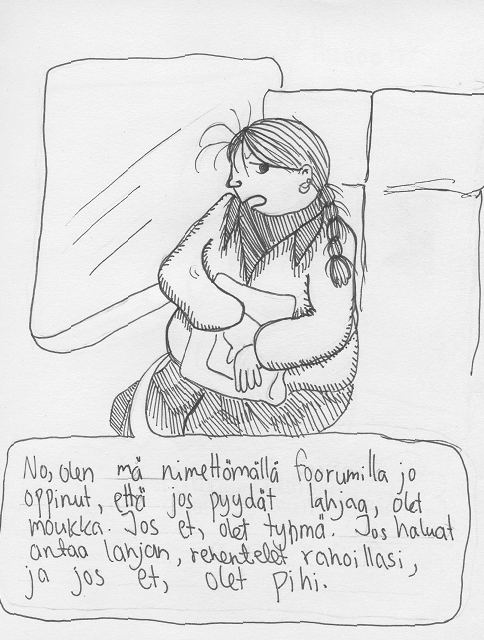 No, olen mä nimettömällä foorumilla jo
oppinut, että jos pyydät lahjaa, olet
moukka. Jos et, olet tyhmä. Jos haluat
antaa lahjan, rehentelet rahoillasi,
ja jos et, olet pihi.